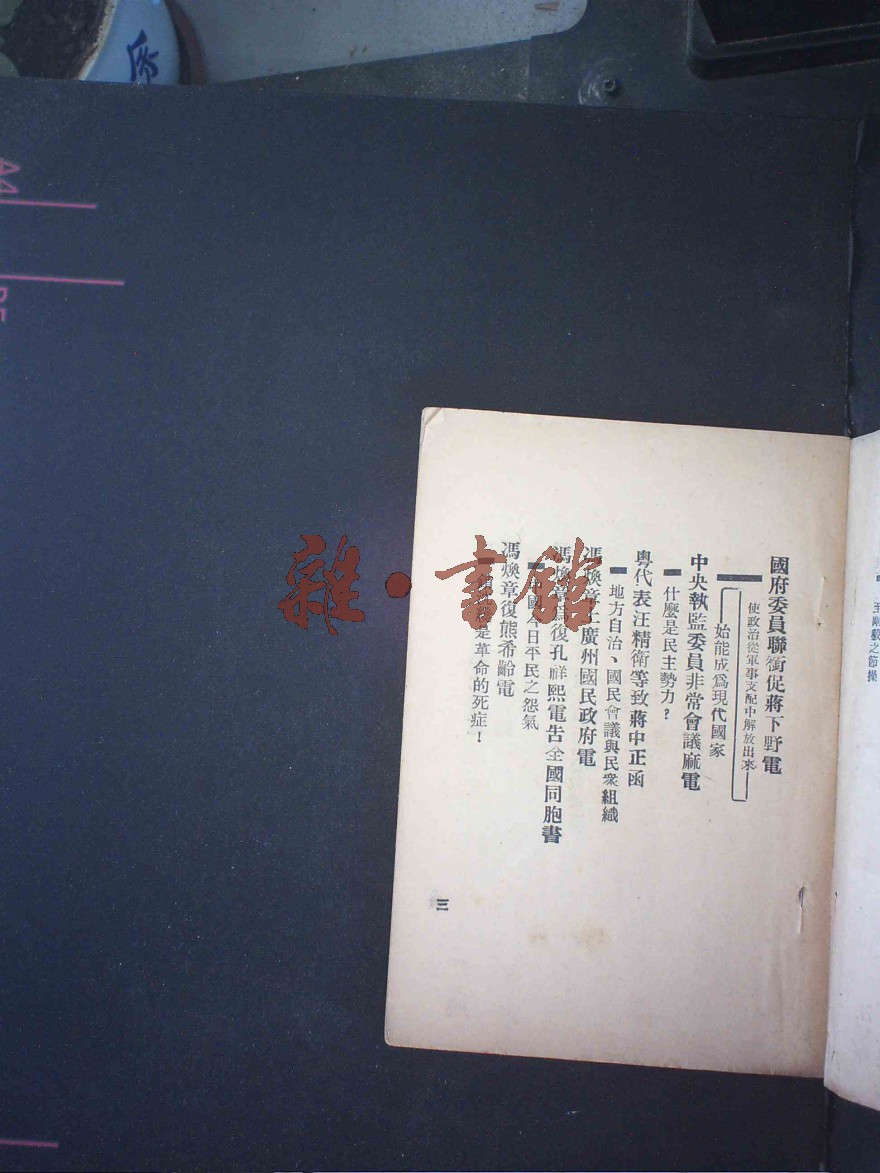 國府委員聯銜促蔣下野電
使政治從軍事支配中解放出來
始能成爲現代國家
中央執監委員非常會議麻電
什麼是民主勢力？
粵代表汪精衛等致蔣中正函
地方自治、國民會議與民衆組織
馮煥章 廣州國民政府電
馮煥章 復孔祥熙電告全國同胞書
中國今日平民之怨氣
馮煥章復熊希齡電
是革命的死症！
三
王剛毅之節操
雜·書館
A4